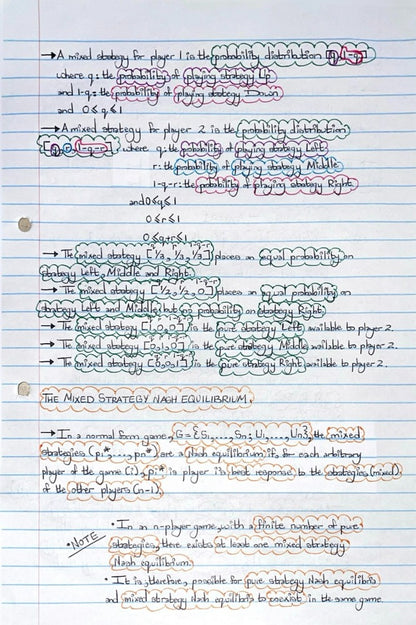 → A mixed strategy for player 1 is the probability distribution [q, 1-q]
where q: the probability of playing strategy Up
and 1-q: the probability of playing strategy Down
and 0≤q≤1
→ A mixed strategy for player 2 is the probability distribution
[q, r, 1-q-r] where q: the probability of playing strategy Left
r: the probability of playing strategy Middle
1-q-r: the probability of playing strategy Right
and 0≤q≤1
0≤r≤1
0≤q+r≤1
→ The mixed strategy [1/3, 1/3, 1/3] places an equal probability on
strategy Left, Middle and Right.
→ The mixed strategy [1/2, 1/2, 0] places an equal probability on
strategy Left and Middle, but no probability on strategy Right.
→ The mixed strategy [1,0,0] is the pure strategy Left available to player 2.
→ The mixed strategy [0,1,0] is the pure strategy Middle available to player 2.
→ The mixed strategy [0,0,1] is the pure strategy Right available to player 2.
THE MIXED STRATEGY NASH EQUILIBRIUM.
→ In a normal form game, G={S1,...,Sn; U1,...,Un}, the mixed
strategies (p1*,..., pn*) are a Nash equilibrium if, for each arbitrary
player of the game (i), pi* is player i's best response to the strategies (mixed)
of the other players (n-1).
• NOTE
• In an n-player game, with a finite number of pure
strategies, there exists at least one mixed strategy
Nash equilibrium.
• It is, therefore, possible for pure strategy Nash equilibria
and mixed strategy Nash equilibria to coexist in the same game.